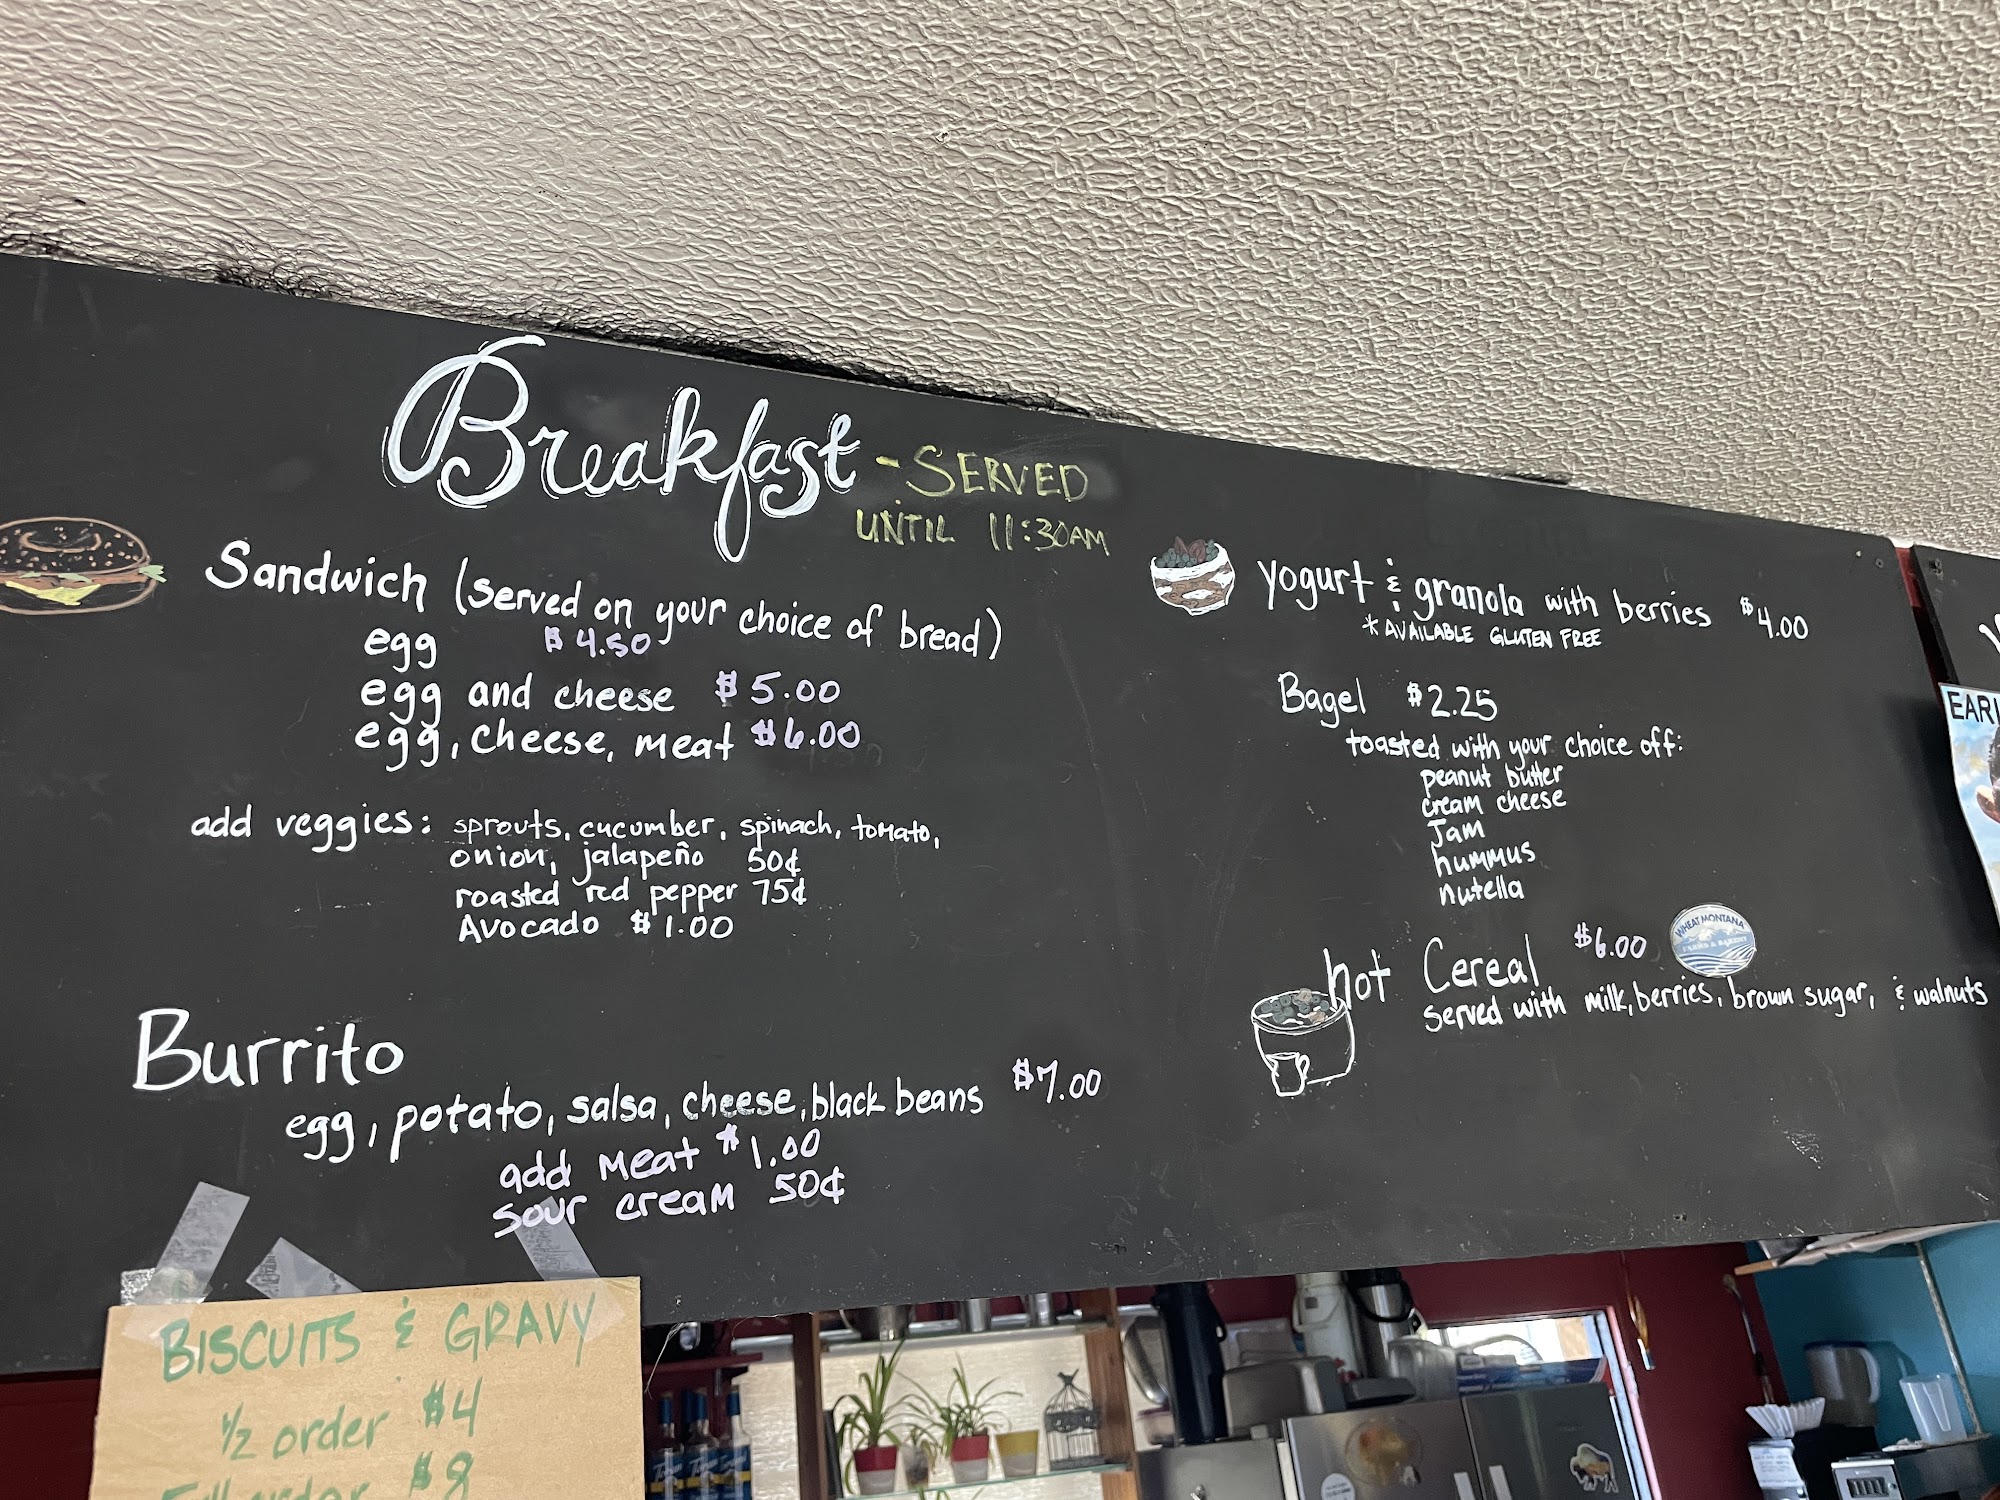 Breakfast - SERVED
UNTIL 11:30AM
Sandwich (served on your choice of bread)
egg $4.50
egg and cheese $5.00
egg, cheese, meat $6.00
add veggies: sprouts, cucumber, spinach, tomato,
onion, jalapeño 50¢
roasted red pepper 75¢
Avocado $1.00
Burrito
egg, potato, salsa, cheese, black beans $7.00
add meat $1.00
sour cream 50¢
yogurt & granola with berries $4.00
*AVAILABLE GLUTEN FREE
Bagel $2.25
toasted with your choice off:
peanut butter
cream cheese
Jam
hummus
nutella
hot Cereal $6.00
served with milk, berries, brown sugar, & walnuts
WHEAT MONTANA
FARMS & BAKERY
BISCUITS & GRAVY
1/2 order $4
Full order $8
EARL